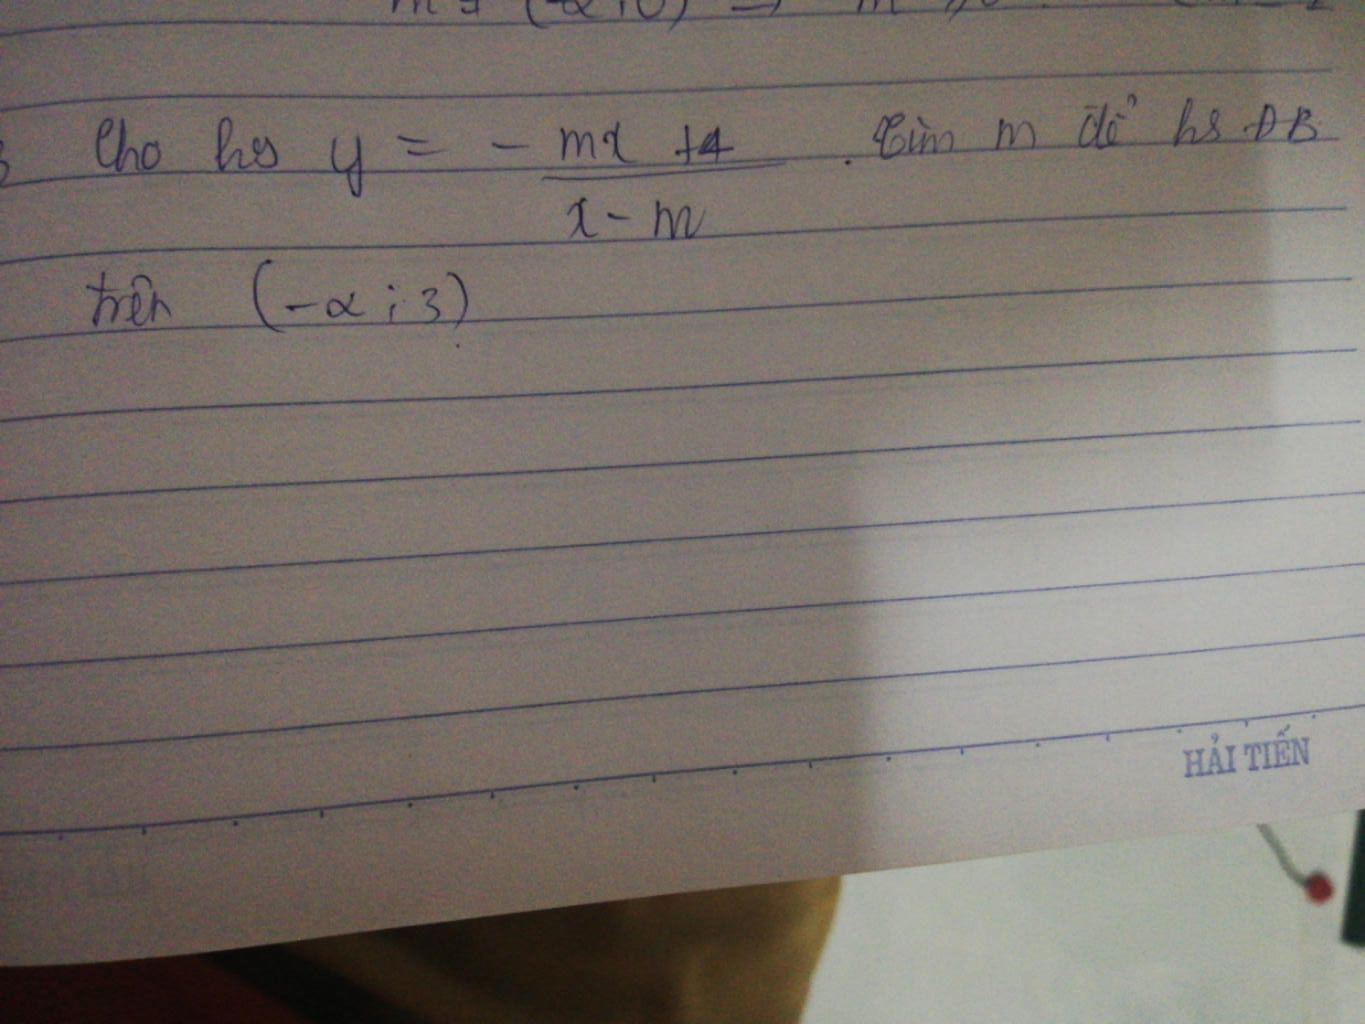 Cho hs y = - mx + 4 . Tìm m để hs ĐB
x - m
trên (-∝ ; 3)
HẢI TIẾN